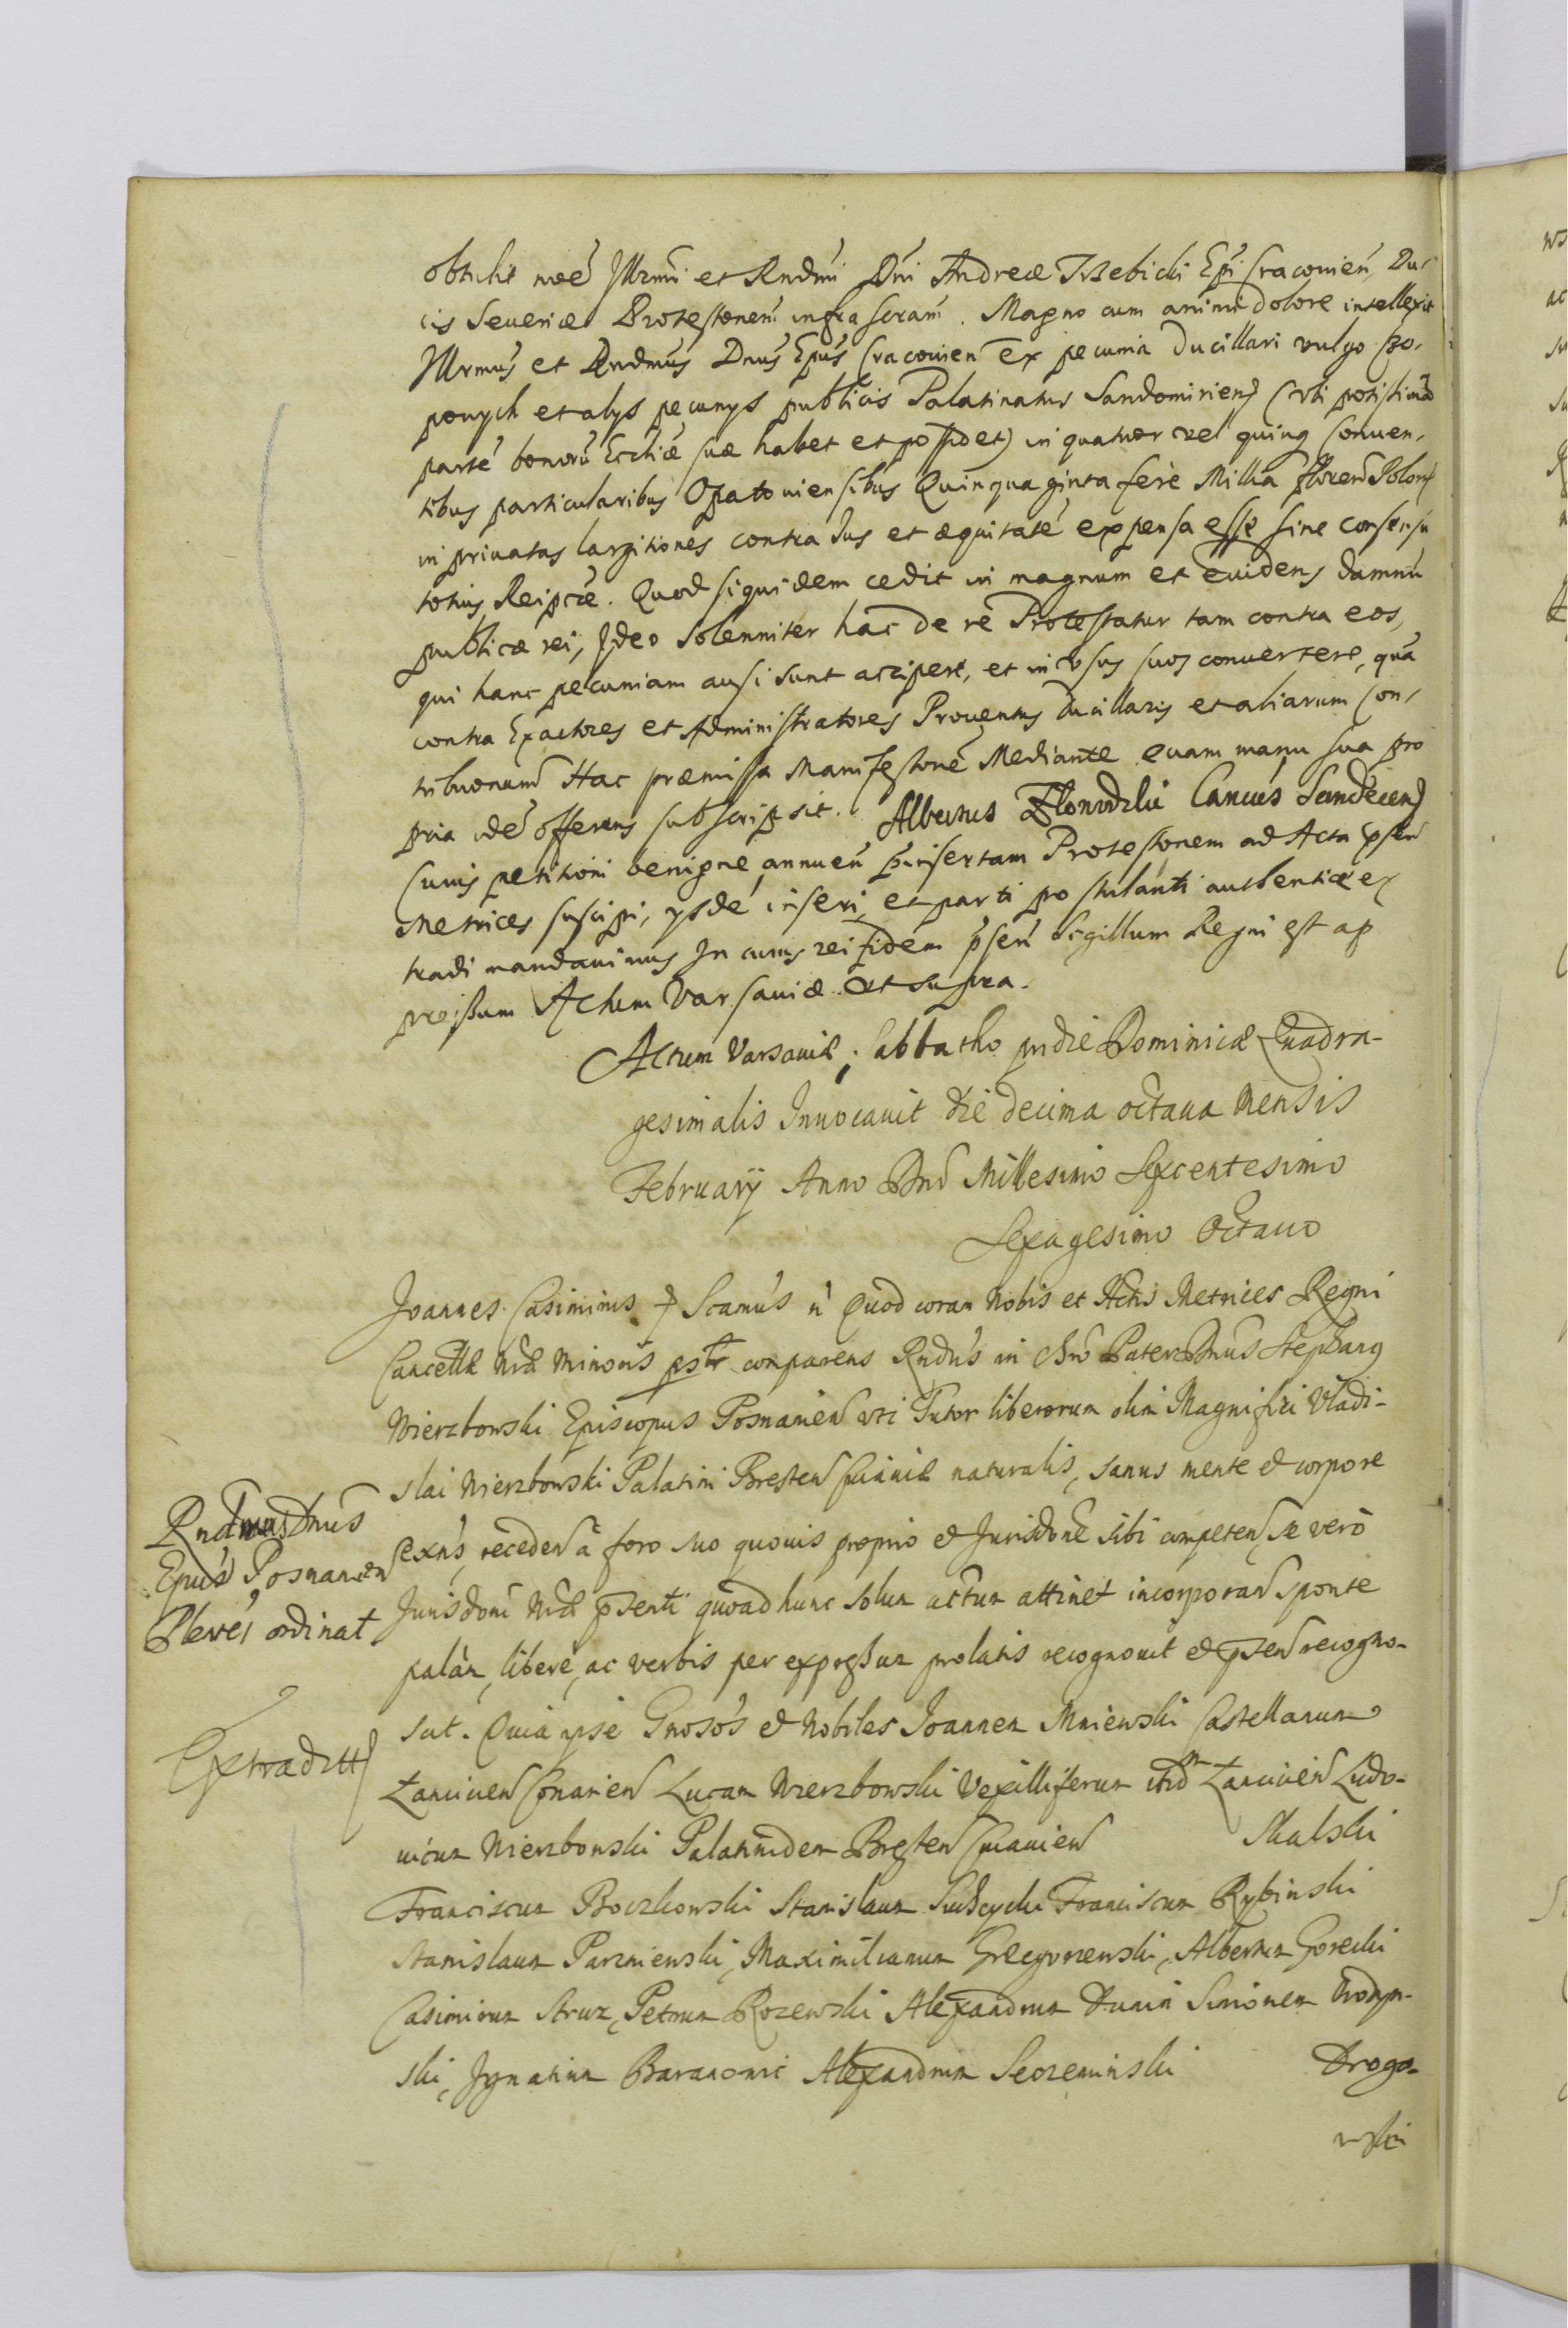 obtulit noe Illrmi et Rndmi Dni Andreæ Trzebicki Epi Cracovien, Du-
cis Severiæ Protestonem infra scram. Magno cum animi dolore intellexit
Illrmus et Rndmus Dnus Epus Cracovien ex pecunia ducillari vulgo czo,
powych et alys pecunys publicis Palatinatus Sandomirien (vbi potissima
parte bonorū Ecclie suæ habet et possidet) in quatuor vel quinq Conven,
tibus particularibus Opatoviensibus Quinquaginta ferè Millia floren Polon
in privatas largitiones contra Jus et æquitatē expensa esse sine consensu
totius Reipcæ. Quod siquidem cedit in magnum et evidens damnū
publicæ rei, Ideo Solenniter hac de re Protestatur tam contra eos,
qui hanc pecuniam ausi sunt accipere, et in vsus suos convertere, quā
contra Exactores et Administratores Proventus ducillaris et aliarum Con,
tribuonum Hac præmissa Manifestone Mediante. quam manu sua pro
pria idē offerens subscripsit. Albertus Cancus Sandecen
Cuius petitioni benigne annuen pinsertam Protestonem ad Acta psen
Metrices suscipi, ysdē inseri, et parti postulanti authenticè ex
tradi mandavimus In cuius rei fidem psen Sigillum Regni est ap
pressum Actum Varsaviæ vt supra.
Actum Varsaviæ, Sabbatho pridie Dominicæ Quadra-
gesimalis Invocavit die decima octava Mensis
February Anno Dni Millesimo Sexcentesimo
Sexagesimo Octavo
Joannes Casimirus Scamus Quod coram Nobis et Actis Metrices Regni
Cancellæ Nræ Minoris psltr comparens Rndus in Chro Pater Dnus Stephang
Wierzbowski Episcopus Posnanien vti Tutor liberorum olim Magnifici Vladi-
slai Wierzbowski Palatini Bresten Cuiaviæ naturalis, sanus mente et corpore
Rndmus Dnus
Epus Posnanien
Pleres ordinat
exns, receden à foro suo quovis proprio et Jurisdone sibi competen, se verò
Jurisdoni Nræ psenti quoad hunc solum actum attinet incorporan sponte
palàm, liberè, ac verbis per expressum prolatis recognovit et psen recogno-
scit. Quia ipse Gnosos et Nobiles Joannem Mniewski Castellanum
Extradit
Lancicien Conarien Lucam Wierzbowski Vexilliferum itid Lancicien Ludo-
vicum Wierzbowski Palatinidem Bresten Cuiavien Skulski
Franciscum Boczkowski Stanislaum Franciscum Rybinski
Stanislaum Parzniewski, Maximilianum Gregorzewski, Albertum Gorecki
Casimirum Strusz, Petrum Rozewski Alexandrum Dunin Simonem Wodzyn-
ski, Ignatium Baranowic Alexandrum Drogo-
wski